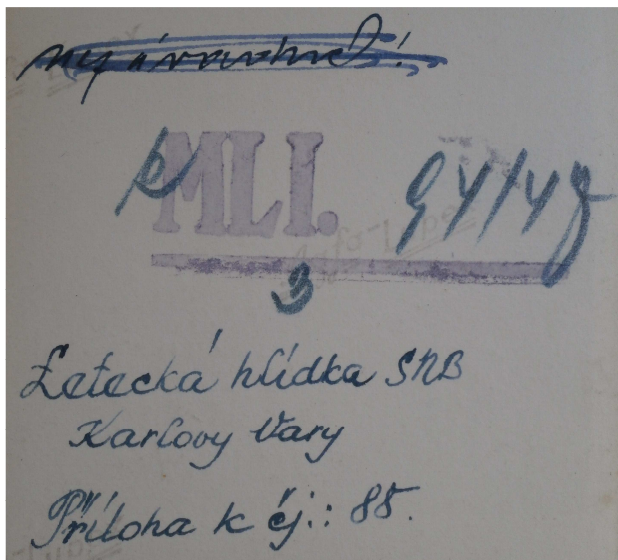 MLI. 94/48
3
Letecká hlídka SNB
Karlovy Vary
Příloha k čj.: 85.